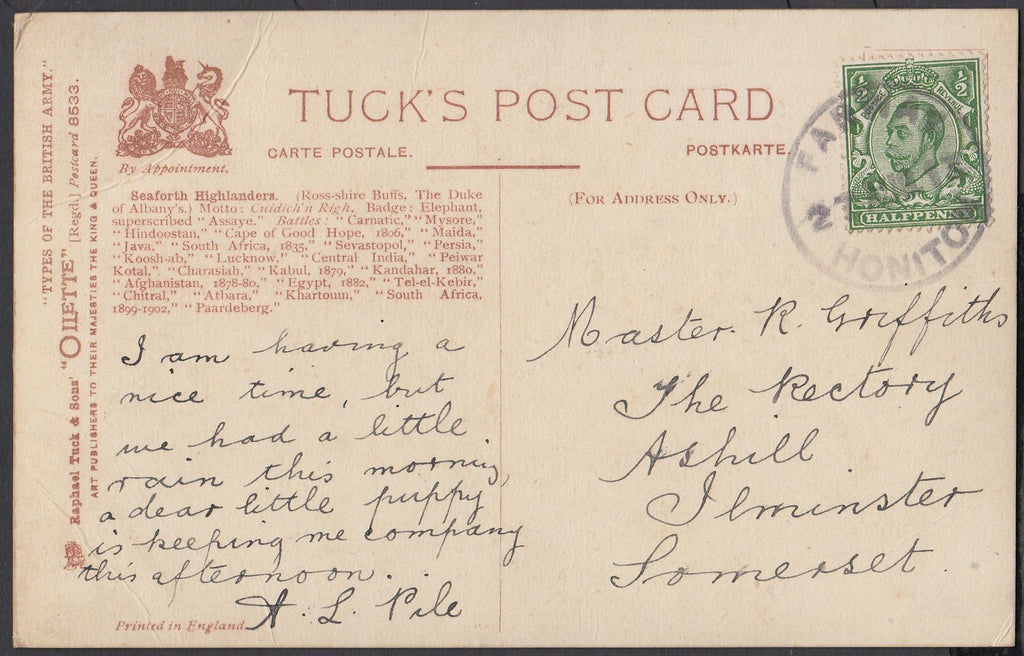 "TYPES OF THE BRITISH ARMY."
Raphael Tuck & Sons' "OILETTE" [Regd.] Postcard 8533.
ART PUBLISHERS TO THEIR MAJESTIES THE KING & QUEEN.
By Appointment.
TUCK'S POST CARD
CARTE POSTALE.
POSTKARTE.
(FOR ADDRESS ONLY.)
½ ½
POSTAGE REVENUE
HALFPENNY
HONITON
Seaforth Highlanders. (Ross-shire Buffs, The Duke
of Albany's.) Motto: Cuidich'n Righ. Badge: Elephant,
superscribed "Assaye." Battles: "Carnatic," "Mysore,"
"Hindoostan," "Cape of Good Hope, 1806," "Maida,"
"Java," "South Africa, 1835," "Sevastopol," "Persia,"
"Koosh-ab," "Lucknow," "Central India," "Peiwar
Kotal," "Charasiah," "Kabul, 1879," "Kandahar, 1880,"
"Afghanistan, 1878-80," "Egypt, 1882," "Tel-el-Kebir,"
"Chitral," "Atbara," "Khartoum," "South Africa,
1899-1902," "Paardeberg."
I am having a
nice time, but
we had a little
rain this morning,
a dear little puppy
is keeping me company
this afternoon.
A. L. Pile
Printed in England.
Master. R. Griffiths
The Rectory
Ashill
Ilminster
Somerset.